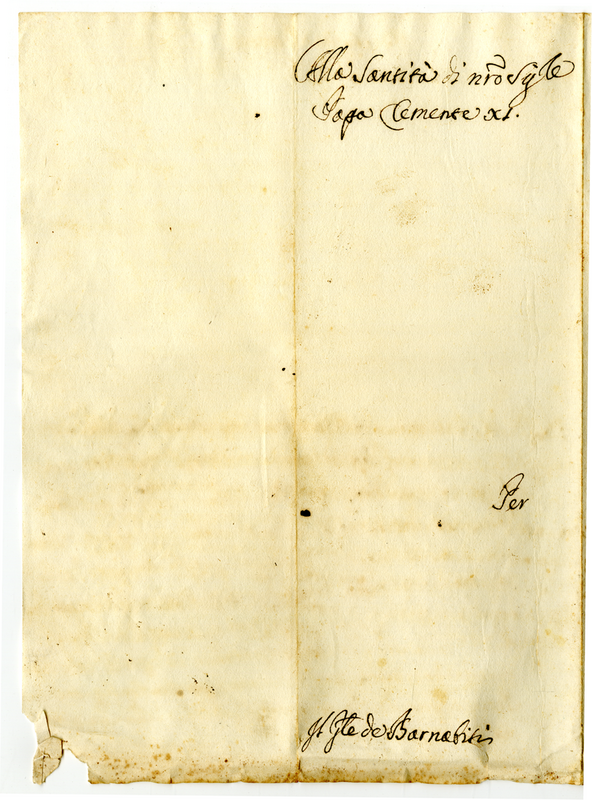 Alla Santità di nrõ Sig.re
Papa Clemente XI.
Per
Il Gñle de Barnabiti